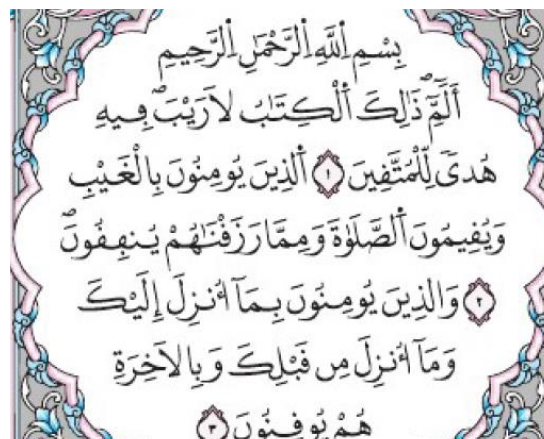 بِسْمِ اِ۬للَّهِ اِ۬لرَّحْمَٰنِ اِ۬لرَّحِيمِ
أَلَٓمِّٓۖ ذَٰلِكَ اَ۬لْكِتَٰبُ لَا رَيْبَۖ فِيهِ
هُدىٗ لِّلْمُتَّفِينَ ١ اَ۬لذِينَ يُومِنُونَ بِالْغَيْبِ
وَيُفِيمُونَ اَ۬لصَّلَوٰةَ وَمِمَّا رَزَفْنَٰهُمْ يُنفِفُونَۖ
٢ وَالذِينَ يُومِنُونَ بِمَآ أُنزِلَ إِلَيْكَ
وَمَآ أُنزِلَ مِن فَبْلِكَ وَبِالَاخِرَةِ
هُمْ يُوفِنُونَ ٣